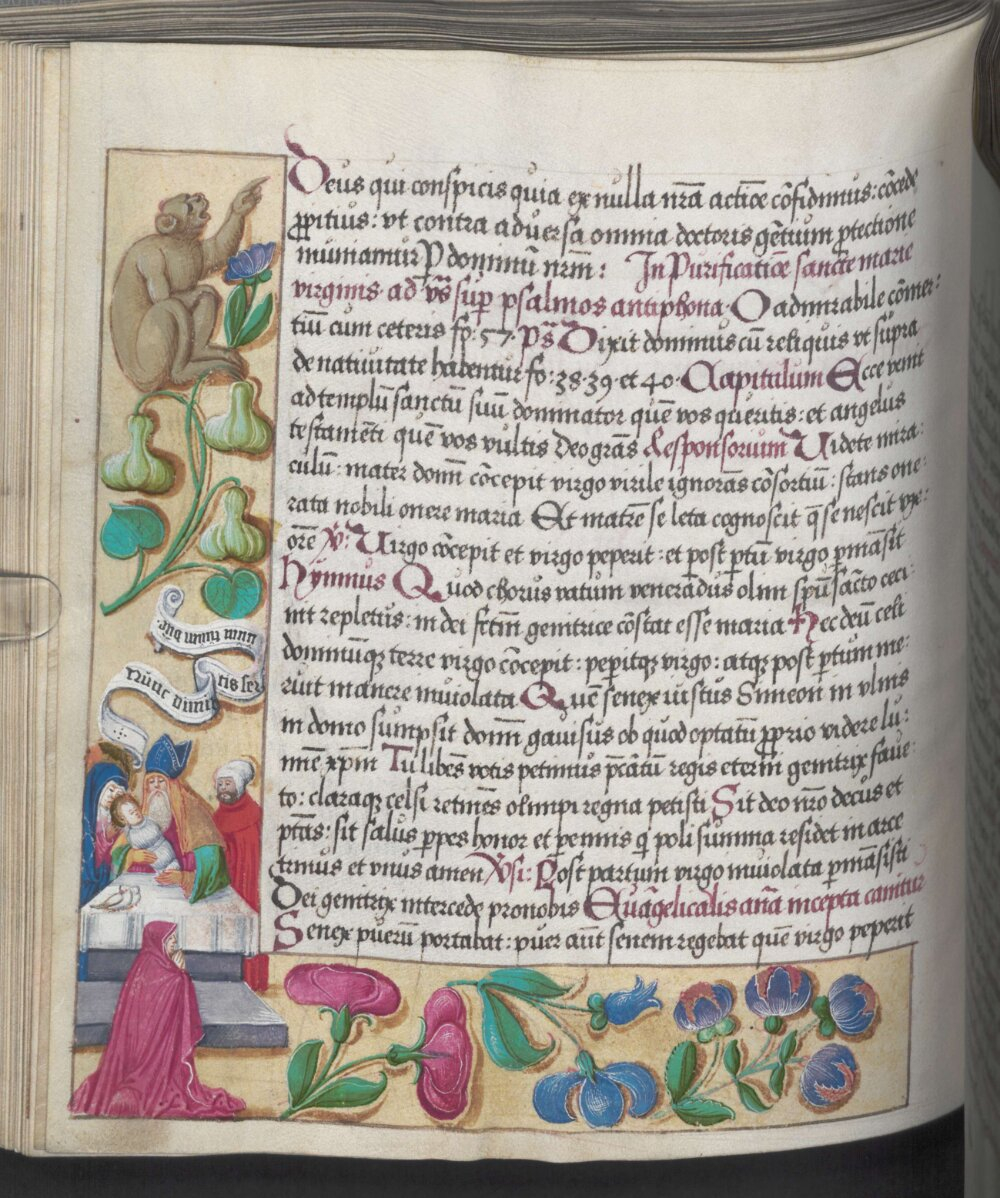 Deus qui conspicis quia ex nulla nr̄a actiōe cōfidimus: cōcede
ꝓpitius: vt contra aduersa omnia doctoris gētium ꝓtectione
muniamur P dominū nrm̄: In Purificatiōe sancte marie
virginis ad vs̄ sup̄ psalmos antiphona. O admirabile cōmer:
tiū cum ceteris fo. 57. ps̄ Dixit dominus cū reliquis vt supra
de natiuitate habentur fo: 38·39·et 40· Capitulum Ecce venit
ad templū sanctū suū dominator quē vos queritis: et angelus
testamēti quē vos vultis deo grās Responsorium Uidete mira:
culū: mater domī cōcepit virgo virile ignorās cōsortiū: stans one:
rata nobili onere maria Et matrē se leta cognoscit q̄ se nescit vxo:
orē v̄: Uirgo cōcepit et virgo peperit: et post ꝑtū virgo ꝑmāsit
Hymnus Quod chorus vatum venerādus olim spū sācto ceci:
nit repletus: in dei fctm̄ genitrice cōstat esse maria Hec deū celi
dominūqꝫ terre virgo cōcepit: peperitqꝫ virgo: atqꝫ post ꝑtum me:
ruit manere inuiolata Quē senex iustus Simeon in vlnis
in domo sumpsit domī gauisus ob quod optatū ꝓprio videre lu:
mē xpm̄ Tu libēs votis petimus p̄cātū regis eterni genitrix faue:
to: claraqꝫ celsi retinēs olimpi regna petisti Sit deo nr̄o decus et
ptās: sit salus ꝑpes honor et ꝑennis q̄ poli summa residet in arce
trinus et vnus amen Vsi: Post partum virgo inuiolata ꝑmāsisti
Dei genitrix intercede pro nobis Euāgelicalis anā incepta canitur
Senex puerū portabat: puer aūt senem regebat quē virgo peperit
Nunc dimit
tis ser
uum tuum dn̄e.